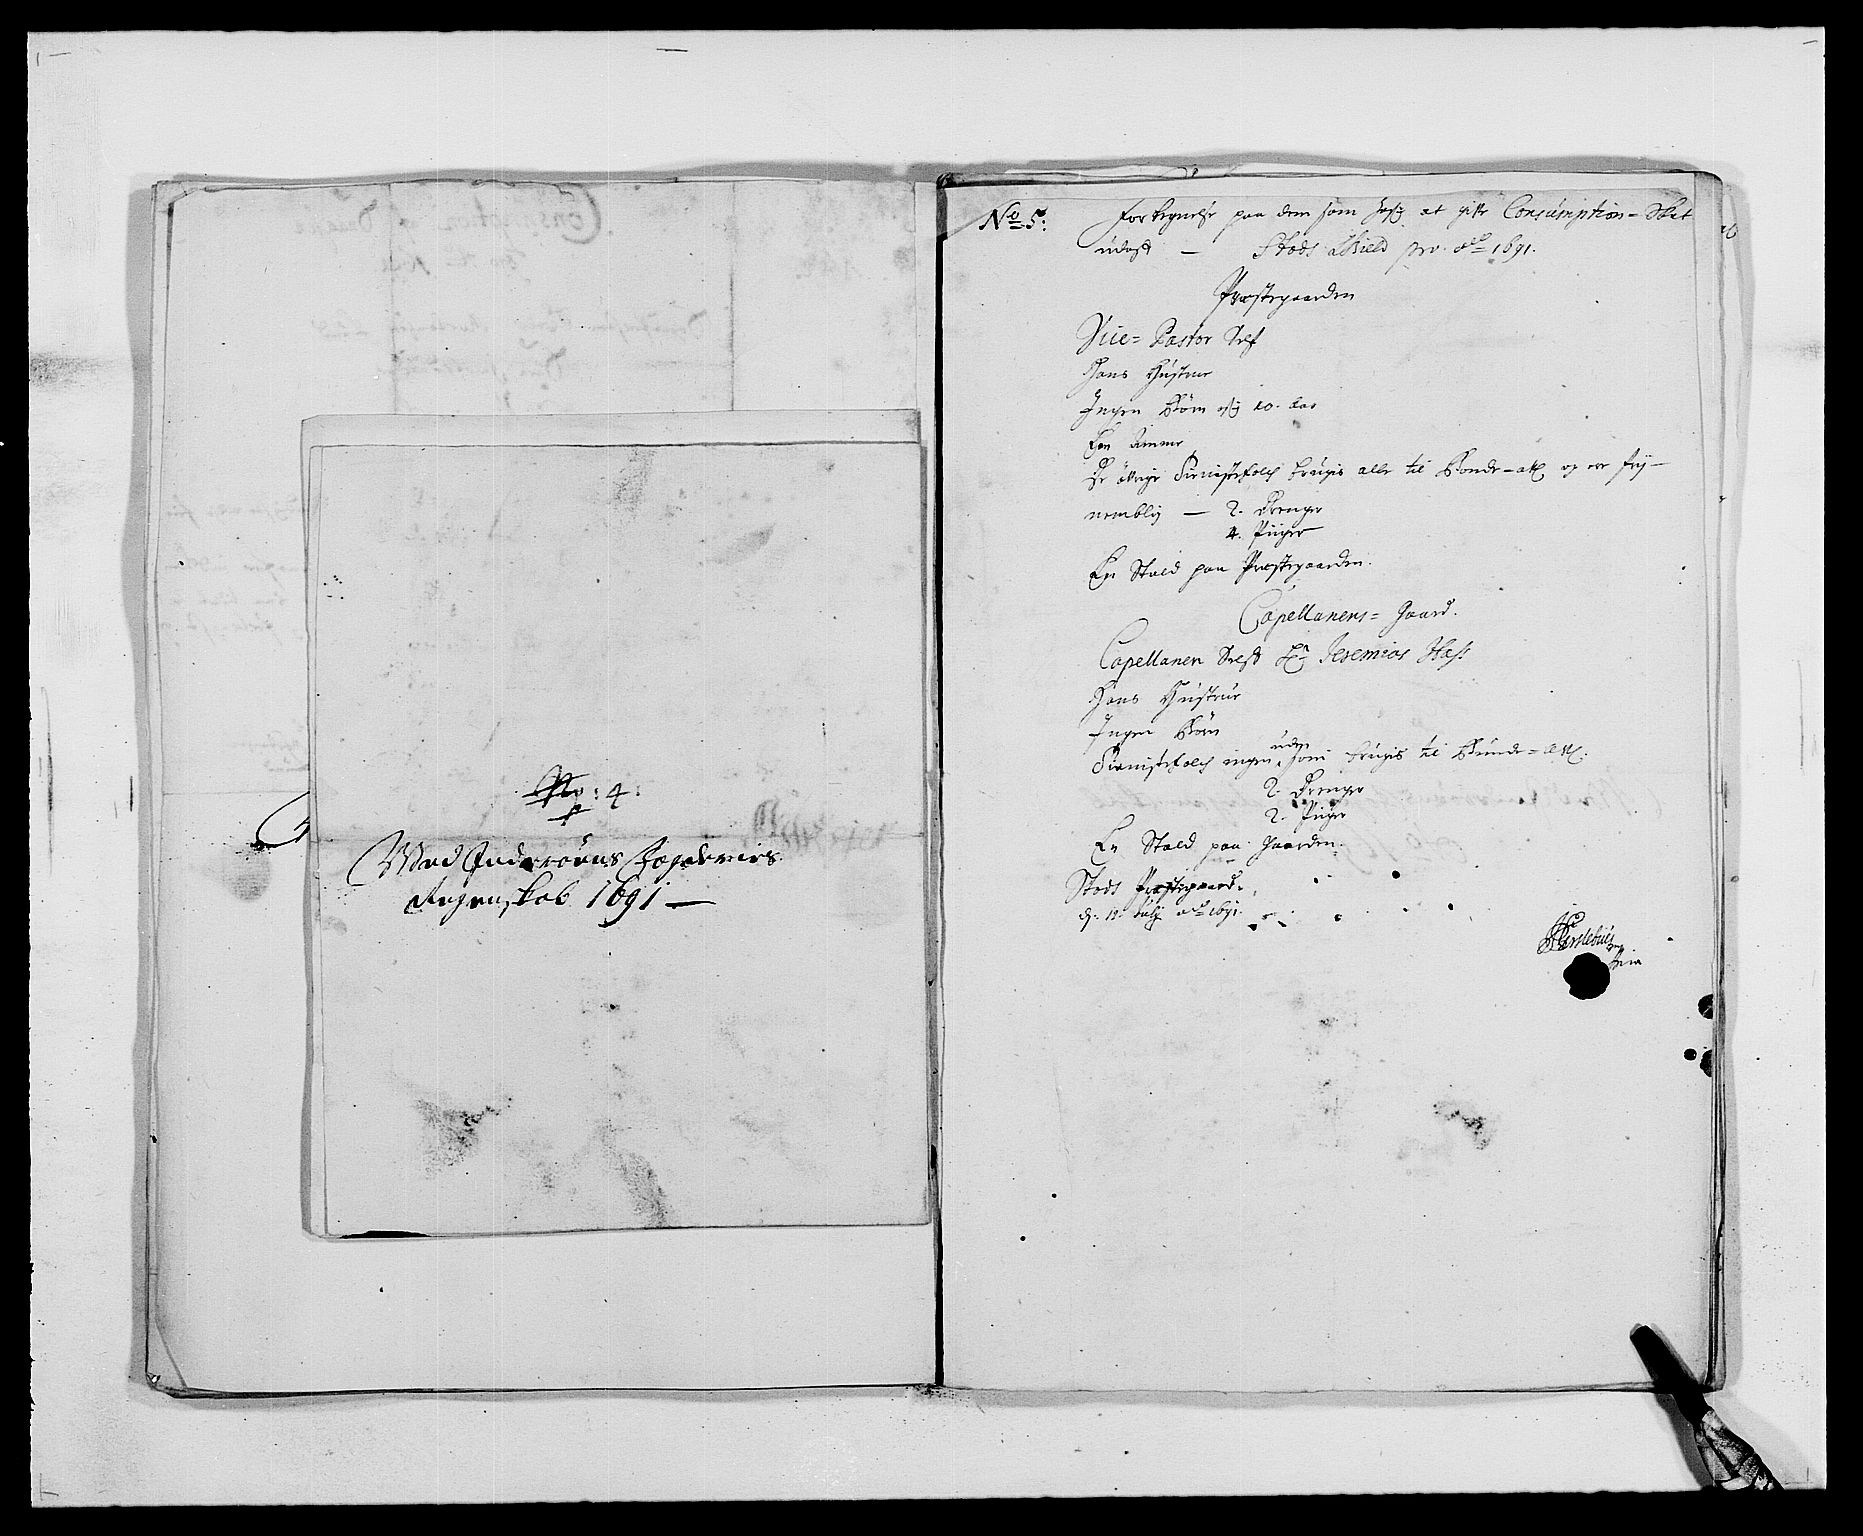 No: 4:
Med Inderøens Fogderies
Regenskab 1691 —
No 5:
Fortegnelse paa dem som at gifve Consumption = Skat
udaff — Stods Gield pro Ao 1691.
Præstegaarden
Vice = Pastor Self
Hans Hustrue
Ingen Børn ofv. 10. Aar
En Amme
De øfrige Tienistefolch brugis alle til Bonde = arb og ere frj —
nemblig — 2. Drenge
4. Piiger
En Stald paa Præstegaarden.
Capellanens = Gaard.
Capellanen Self Hr Jeremias
Hans Hustrue
Ingen Børn
Tienistefolch ingen uden som brugis til Bunde = arb.
2. Drenge
2. Piiger
En Stald paa Gaarden.
Stods Præstegaard.
d. 12. Julij Ao 1691.
Hersleb